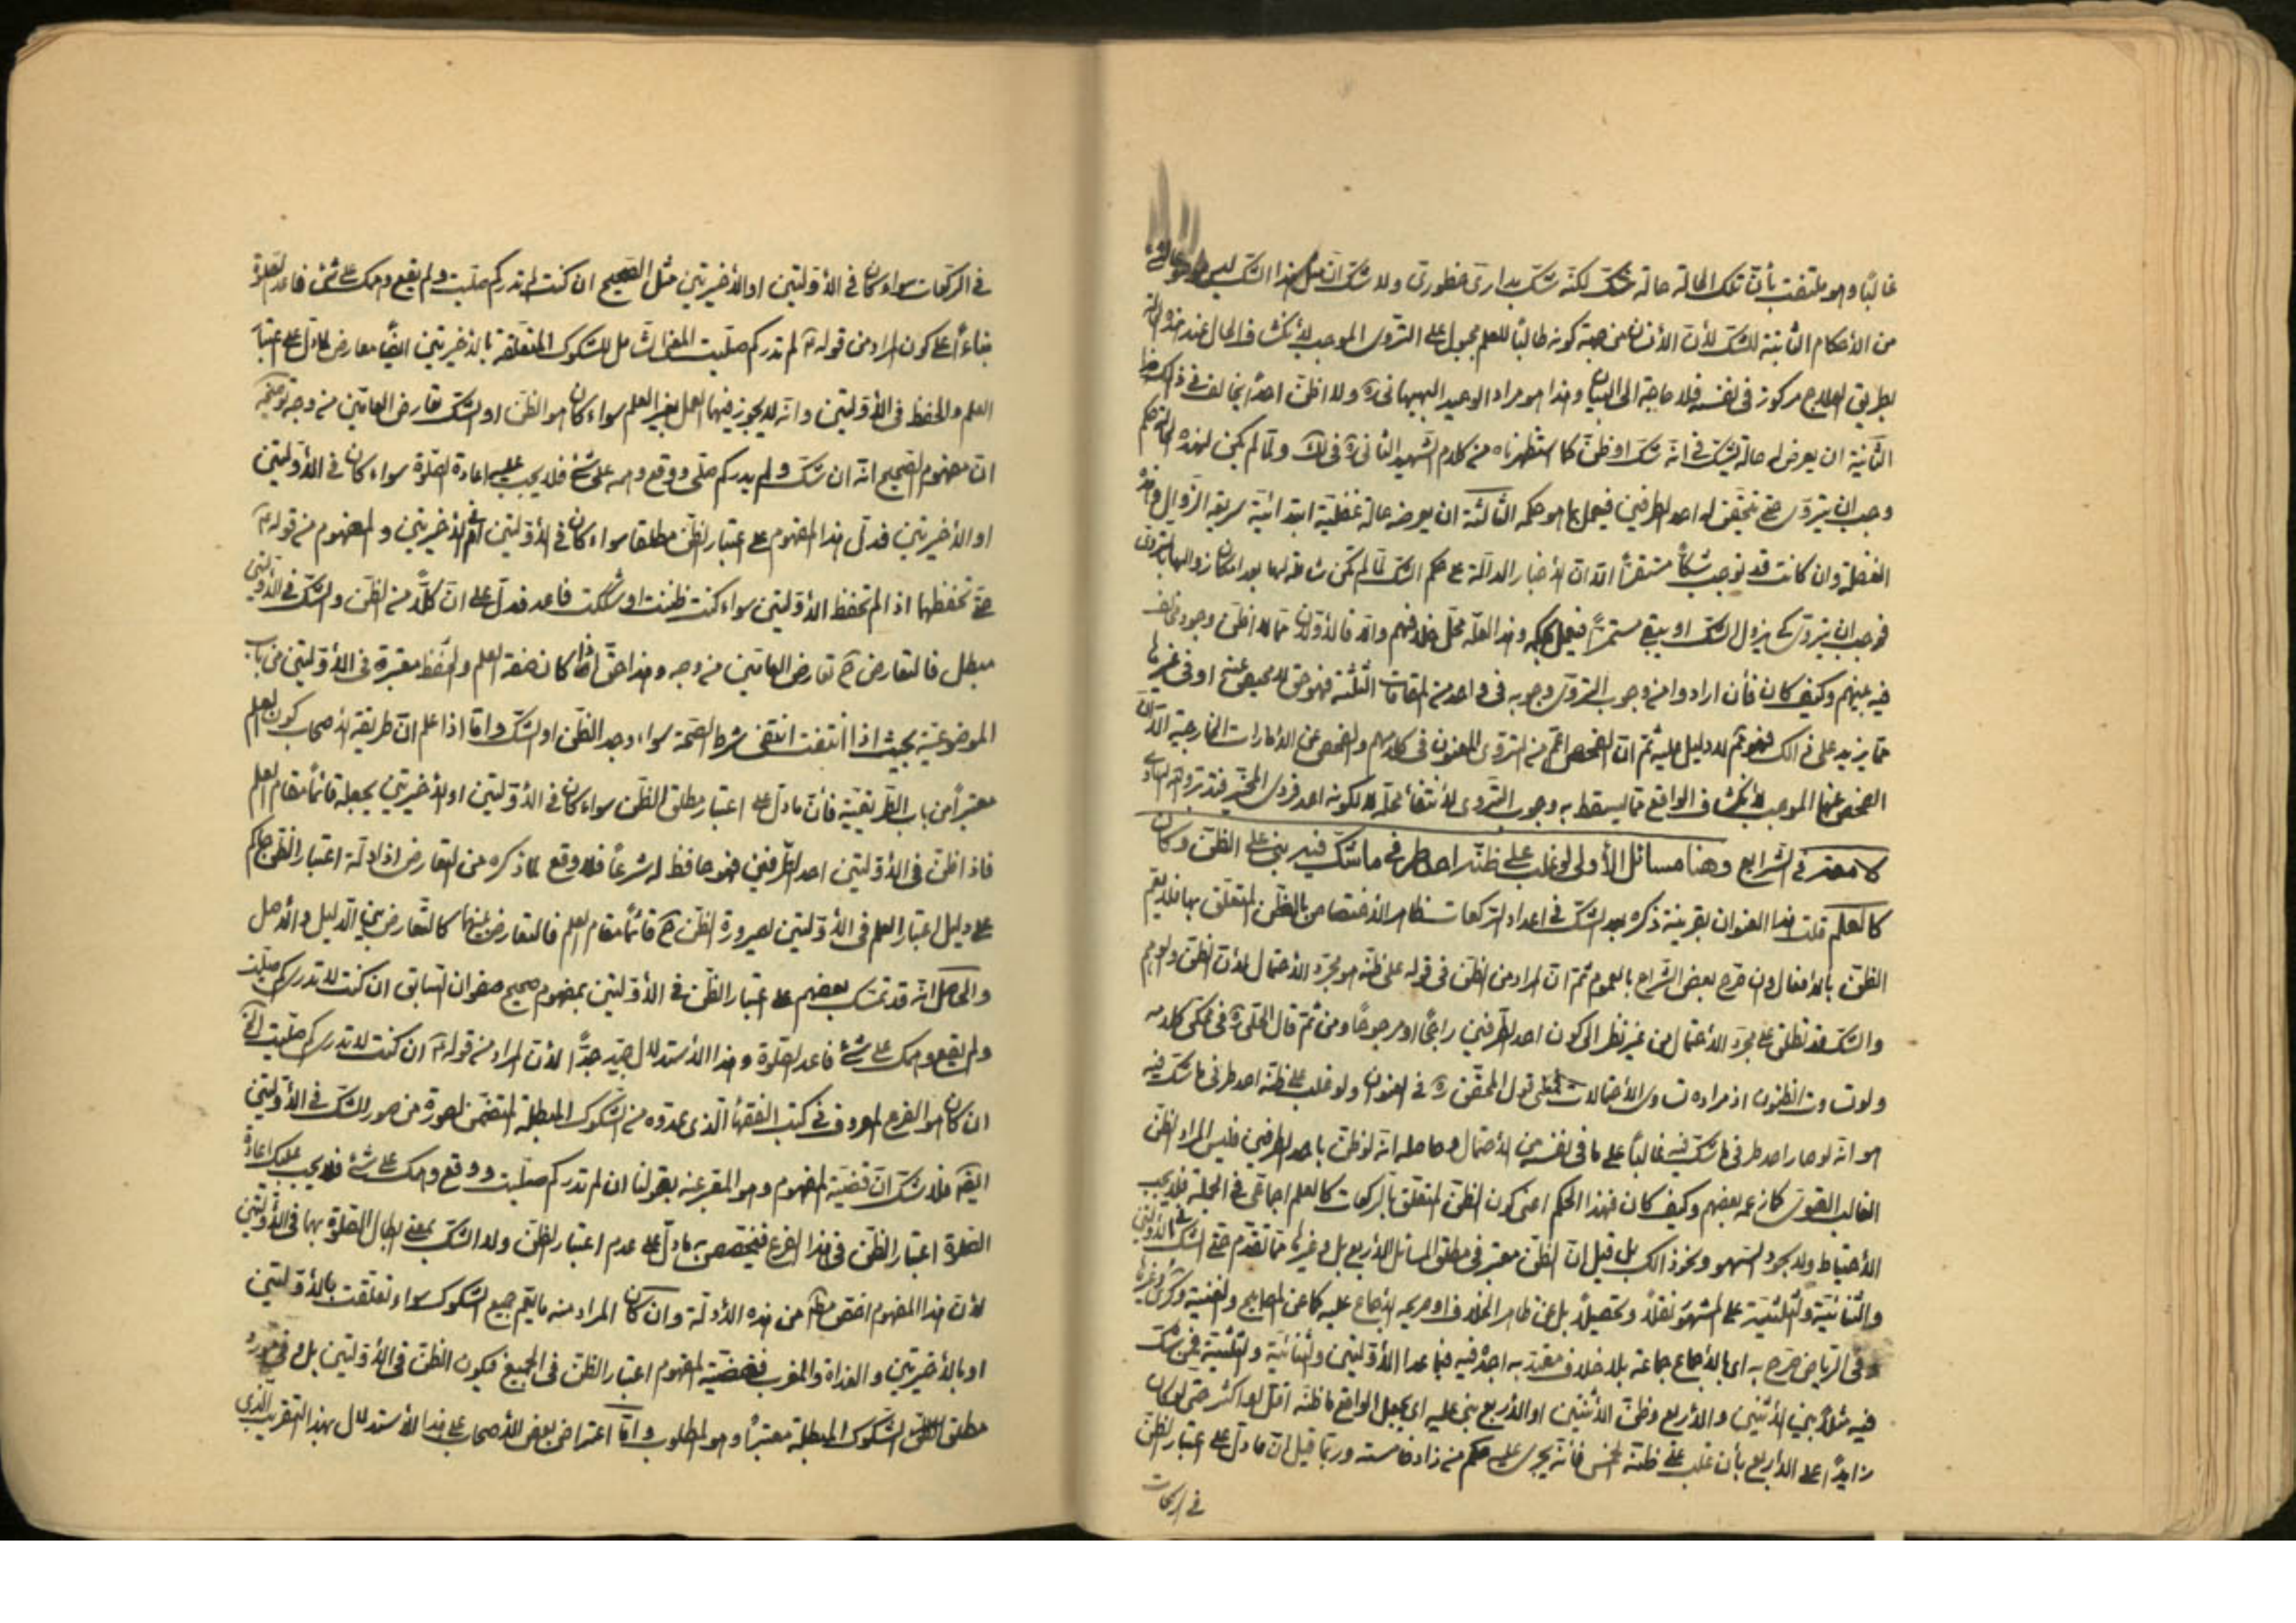 غالبًا وهو ملتفت بأنّ تلك الحالة حالة شك لكنّه شكّ بدارىّ خطورىّ ولا شكّ انّ مثل هذا الشكّ ليس
من الأحكام الثابتة للشكّ لأنّ الأنسان من جهة كونه طالبًا للعلم مجبول على التروّى الموجب لأنكشاف الحال عند
بطريق العلاج مركوز فى نفسه فلا حاجة الى البيان وهذا هو مراد الوحيد البهبهانى ره ولا اظنّ احدًا يخالف فى ذلك
الثانية ان يعرض له حالة يشكّ فى انّه شكّ او ظنّ كما استظهرناه من كلام الشهيد الثانى ره فى لك ولمّا لم يكن لهذه
وجب ان يتروّى حتى يتحقّق له احد الطرفين فيعمل بما هو حكمه الثالثة ان يعرضه حالة غفليّة ابتدائيّة سريعة الزوال
الغفلة وان كانت قد توجب شكًّا مستقرًّا الّا انّ الأخبار الدالّة على حكم الشكّ لمّا لم تكن شاملة لها بعد امكان زوالها بالتروّى
فوجب ان يتروّى كى يزول الشكّ او يبقى مستمرًّا فيعمل بحكمه وهذا لعلّه محلّ خلافهم والّا فالأوّلان ممّا لا اظنّ وجود
فيه بينهم وكيف كان فأن ارادوا من وجوب التروّى وجوبه فى واحد من المقامات الثلثة فهو حقّ لا محيص عنه او فى غيرها
ممّا يزيد على ذالك فهو ممّ لا دليل عليه ثمّ انّ الفحص اعمّ من التروّى المعنون فى كلامهم والفحص عن الأمارات الخارجية
الفحص عنها الموجب لأنكشاف الواقع ممّا يسقط به وجوب التروّى لأنتفاء محلّه لا لكونه احد فردى المخيّر فتدبّر والله الهادى
فى الشرايع وهنا مسائل الأولى لو غلب على ظنّه احد طرفى ما شكّ فيه بنى على الظنّ وكان
كالعلم قلت هذا العنوان بقرينة ذكره بعد الشكّ فى اعداد الركعات ظاهر الأختصاص بالظنّ المتعلّق بها فلا يعمّ
الظنّ بالأفعال وان صرّح بعض الشراح بالعموم ثمّ انّ المراد من الظنّ فى قوله على ظنّه هو مجرّد الأحتمال لأنّ الظنّ والوهم
والشكّ قد تطلق على مجرّد الأحتمال من غير نظر الى كون احد الطرفين راجحًا او مرجوحًا ومن ثمّ قال الحلّى ره فى محكى كلامه
ولو تساوت الظنون اذ مراده تساوى الأحتمالات فمعنى قول المحقّق ره فى العنوان ولو غلب على ظنّه احد طرفى ما شكّ فيه
هو انّه لو صار احد طرفى ما شكّ فيه غالبًا على ما فى نفسه من الأحتمال وحاصله انّه لو ظنّ باحد الطرفين فليس المراد الظنّ
الغالب القوىّ كما زعمه بعضهم وكيف كان فهذا الحكم اعنى كون الظنّ المتعلّق بالركعات كالعلم اجماعىّ فى الجملة فلا يجب
الأحتياط ولا سجود السهو ونحو ذالك بل قيل انّ الظنّ معتبر فى مطلق المسائل الأربع بل وغيرها ممّا تقدّم حتّى الشكّ فى الأوليين
والثنائيّة والثلثيّة على المشهور نقلاً وتحصيلاً بل عن ظاهر الخلاف او صريحه الأجماع عليه كما عن المصابيح والغنية
وفى الرياض صرّح به اى بالأجماع جماعة بلا خلاف معتدّ به اجده فيه فيما عدا الأوّلتين والثنائيّة والثلثيّة فمن شكّ
فيه مثلاً بين الأثنين والأربع وظنّ الأثنتين او الأربع بنى عليه اى يجعل الواقع ما ظنّه اقلّ او اكثر حتى لو كان
زايدًا على الأربع بأن غلب على ظنّه الخمس فانّه يجرى عليه حكم من زاد خامسة وربّما قيل انّ ما دلّ على اعتبار الظنّ
فى الركعات
فى الركعات سواء كان فى الأوّلتين او الأخيرتين مثل الصحيح ان كنت لم تدر كم صلّيت ولم يقع وهمك على شئ فاعد الصلوة
بناءً على كون المراد من قوله ع لم تدر كم صلّيت المعنى الشامل للشكوك المتعلّقة بالأخيرتين ايضًا معارض لما دلّ على اعتبار
العلم والحفظ فى الأوّلتين وانّه لا يجوز فيهما العمل بغير العلم سواء كان هو الظنّ او الشكّ تعارض العامّين من وجه توضيحه
انّ مفهوم الصحيح انّه ان شكّ ولم يدر كم صلّى ووقع وهمه على شئ فلا يجب عليه اعادة الصلوة سواء كان فى الأوّلتين
او الأخيرتين فدلّ هذا المفهوم على اعتبار الظنّ مطلقا سواء كان فى الأوّلتين ام فى الأخيرتين والمفهوم من قوله ع
حتّى تحفظهما اذا لم تحفظ الأوّلتين سواء كنت ظننت او شككت فاعد فدلّ على انّ كلًّا من الظنّ والشكّ فى الأوّلتين
مبطل فالتعارض ح تعارض العامّين من وجه وهذا حقّ اذا كان صفة العلم والحفظ معتبرة فى الأوّلتين من باب
الموضوعيّة بحيث اذا انتفت انتفى شرط الصحّة سواء وجد الظنّ او الشكّ وامّا اذا علم انّ طريقة الأصحاب كون العلم
معتبرًا من باب الطريقيّة فأنّ ما دلّ على اعتبار مطلق الظنّ سواء كان فى الأوّلتين او الأخيرتين يجعله قائمًا مقام العلم
فاذا ظنّ فى الأوّلتين احد الطرفين فهو حافظ له شرعًا فلا وقع لما ذكره من التعارض اذ ادلّة اعتبار الظنّ حاكم
على دليل اعتبار العلم فى الأوّلتين لصيرورة الظنّ ح قائمًا مقام العلم فالتعارض بينهما كالتعارض بين الدليل والأصل
والحاصل انّه قد تمسّك بعضهم على اعتبار الظنّ فى الأوّلتين بمفهوم صحيح صفوان السابق ان كنت لا تدرى كم صلّيت
ولم يقع وهمك على شئ فاعد الصلوة وهذا الأستدلال جيّد جدًّا لأنّ المراد من قوله ع ان كنت لا تدرى كم صلّيت
ان كان هو الفرع المعروف فى كتب الفقهاء الّذى عدّوه من الشكوك المبطلة المتضمّن لصورة من صور الشكّ فى الأوّلتين
فلا شكّ انّ قضيّة المفهوم وهو المعبّر عنه بقولنا ان لم تدر كم صلّيت ووقع وهمك على شئ فلا يجب عليك اعادة
الصلوة اعتبار الظنّ فى هذا الفرع فيختصص به ما دلّ على عدم اعتبار الظنّ ولا الشكّ بمعنى ابطال الصلوة بهما فى الأوّلتين
لأنّ هذا المفهوم اخصّ من هذه الأدلّة وان كان المراد منه ما يعمّ جميع الشكوك سواء تعلّقت بالأوّلتين
او بالأخيرتين والغداة والمغرب فقضيّة المفهوم اعتبار الظنّ فى الجميع فيكون الظنّ فى الأوّلتين بل وفى مورد
مطلق الشكوك المبطلة معتبرًا وهو المطلوب وامّا اعتراض بعض الأصحاب على هذا الأستدلال بهذا التقريب الّذى